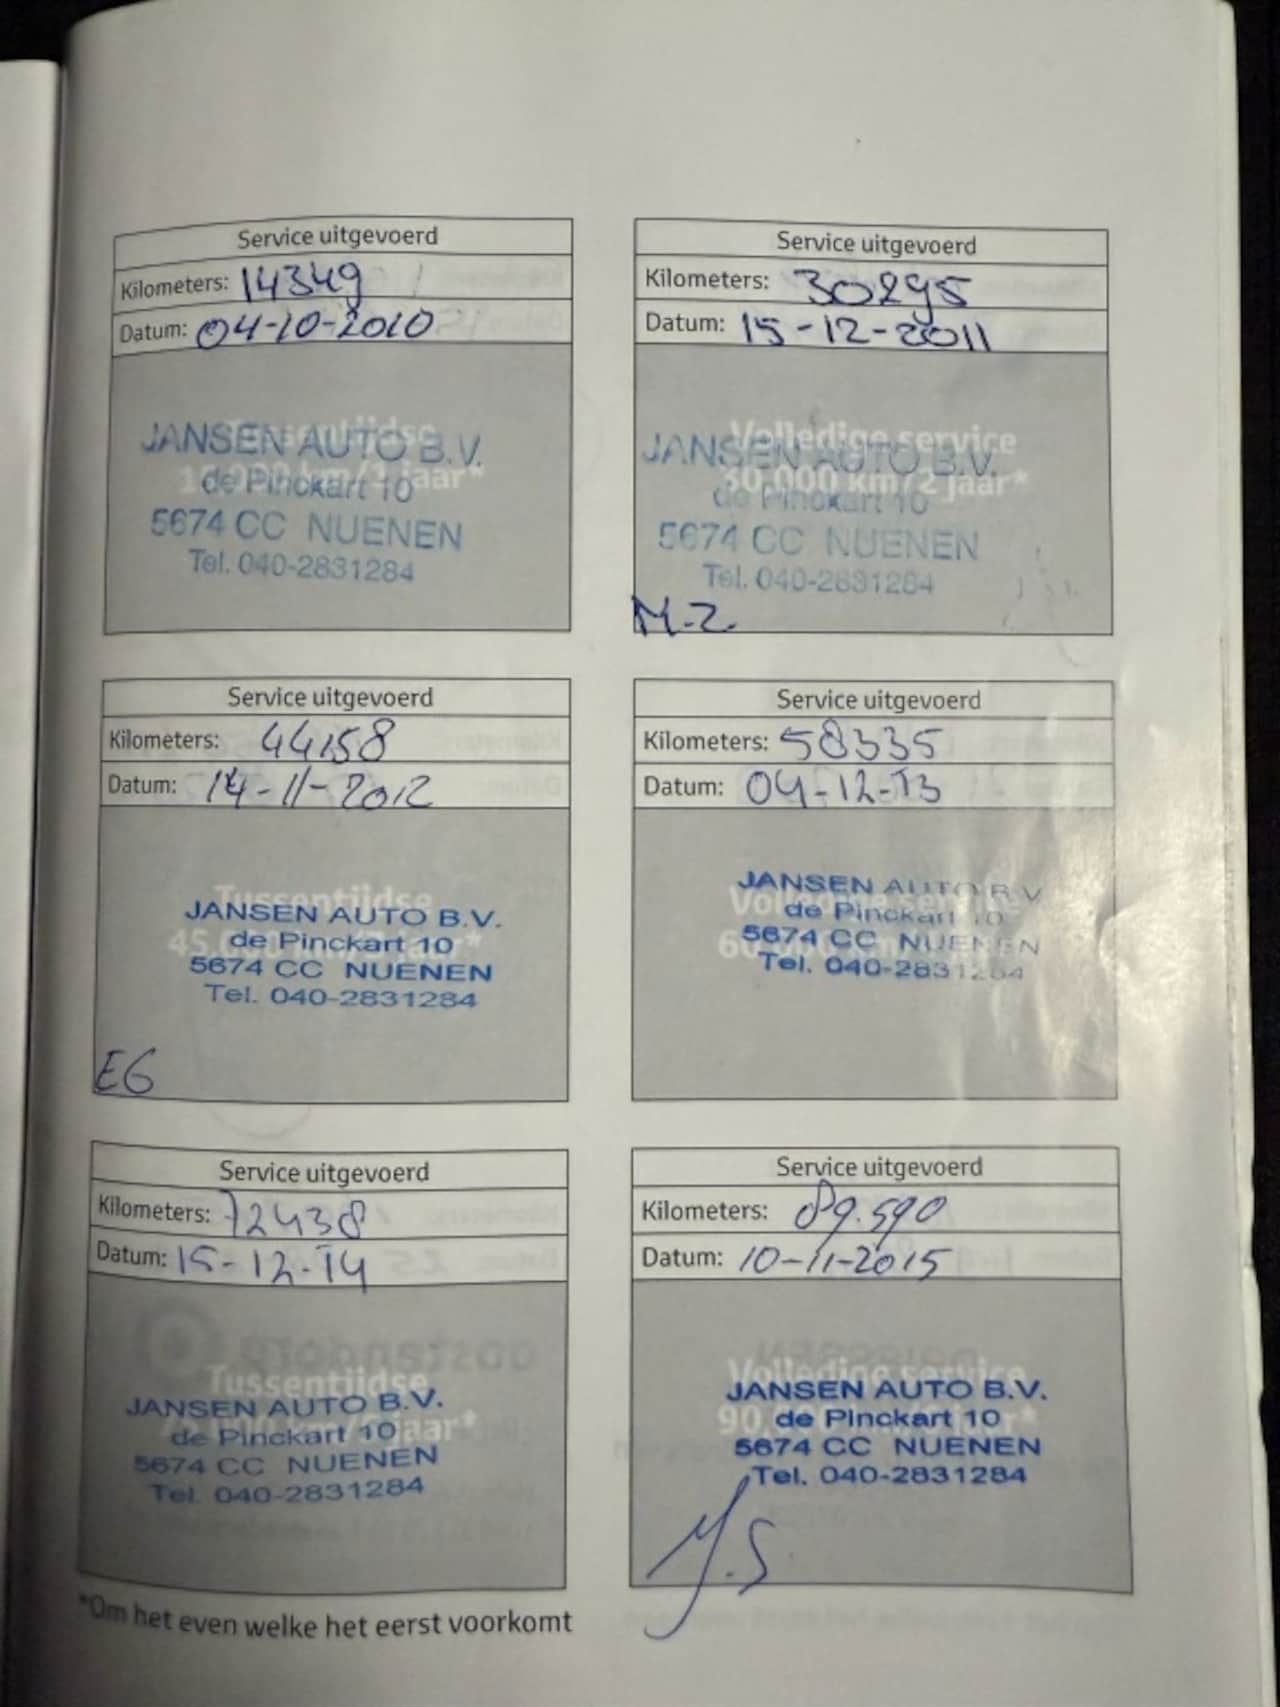 Service uitgevoerd
Kilometers: 14349
Datum: 04-10-2010
Tussentijdse
15.000 km/1 jaar*
JANSEN AUTO B.V.
de Pinckart 10
5674 CC NUENEN
Tel. 040-2831284
Service uitgevoerd
Kilometers: 30295
Datum: 15-12-2011
Volledige service
30.000 km/2 jaar*
JANSEN AUTO B.V.
de Pinckart 10
5674 CC NUENEN
Tel. 040-2831284
M.Z.
Service uitgevoerd
Kilometers: 44158
Datum: 14-11-2012
Tussentijdse
45.000 km/3 jaar*
JANSEN AUTO B.V.
de Pinckart 10
5674 CC NUENEN
Tel. 040-2831284
EG
Service uitgevoerd
Kilometers: 58335
Datum: 04-12-13
Volledige service
JANSEN AUTO B.V.
de Pinckart 10
5674 CC NUENEN
Tel. 040-2831284
Service uitgevoerd
Kilometers: 72438
Datum: 15-12-14
Tussentijdse
JANSEN AUTO B.V.
de Pinckart 10
5674 CC NUENEN
Tel. 040-2831284
Service uitgevoerd
Kilometers: 89.590
Datum: 10-11-2015
Volledige service
JANSEN AUTO B.V.
de Pinckart 10
5674 CC NUENEN
Tel. 040-2831284
*Om het even welke het eerst voorkomt